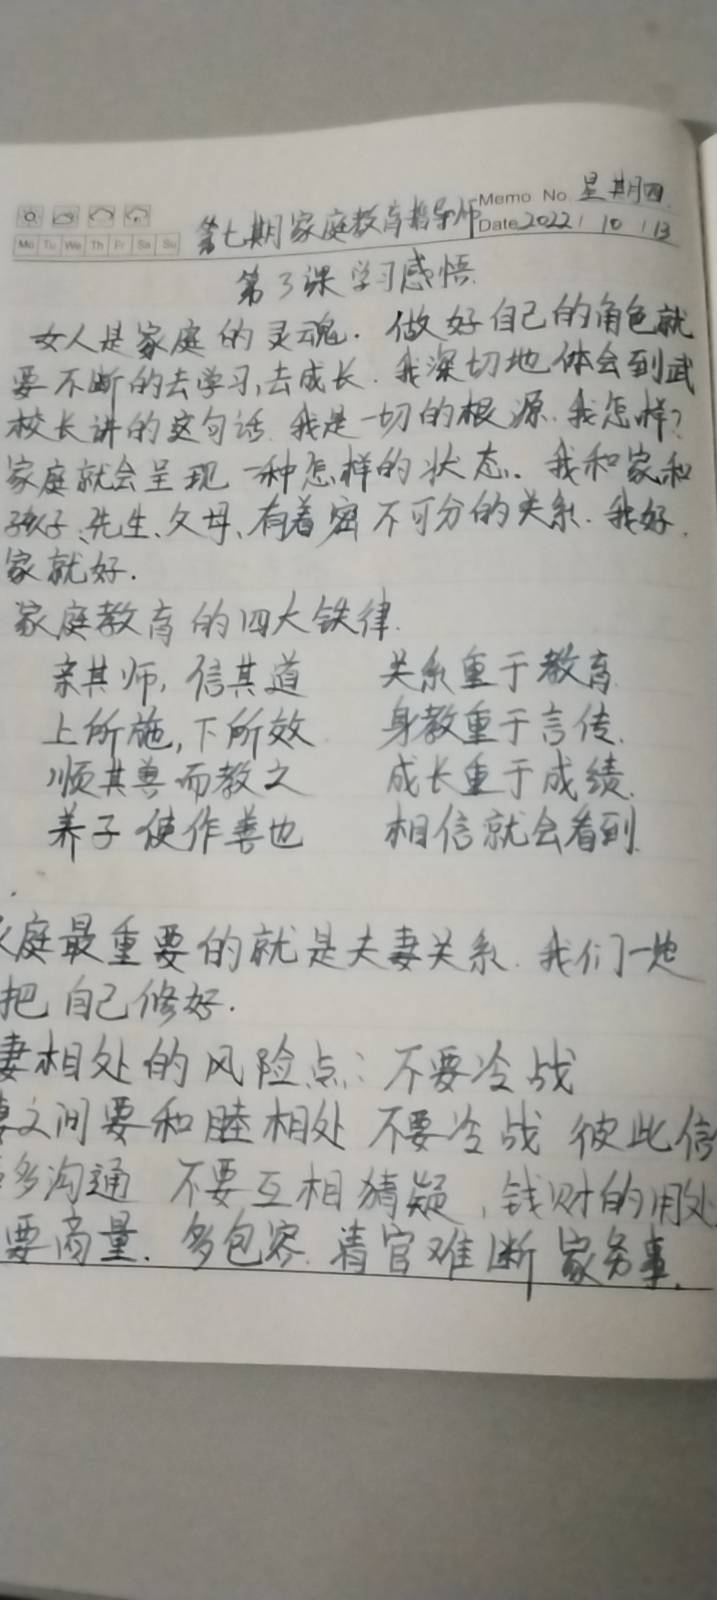 Memo No. 星期四
Mo Tu We Th Fr Sa Su
第七期家庭教育指导师 Date 2022 / 10 / 13
第3课学习感悟.
女人是家庭的灵魂. 做好自己的角色就
要不断的去学习,去成长. 我深切地体会到武
校长讲的这句话. 我是一切的根源. 我怎样?
家庭就会呈现一种怎样的状态. 我和家和
孩子、先生、父母、有着密不可分的关系. 我好.
家就好.
家庭教育的四大铁律.
亲其师, 信其道 关系重于教育.
上所施, 下所效 身教重于言传.
顺其兽而教之 成长重于成绩.
养子使作善也 相信就会看到.
庭最重要的就是夫妻关系. 我们一
把自己修好.
妻相处的风险点: 不要冷战
之间要和睦相处 不要冷战 彼此信
多沟通 不要互相猜疑, 钱财的用处
要商量. 多包容. 清官难断家务事.